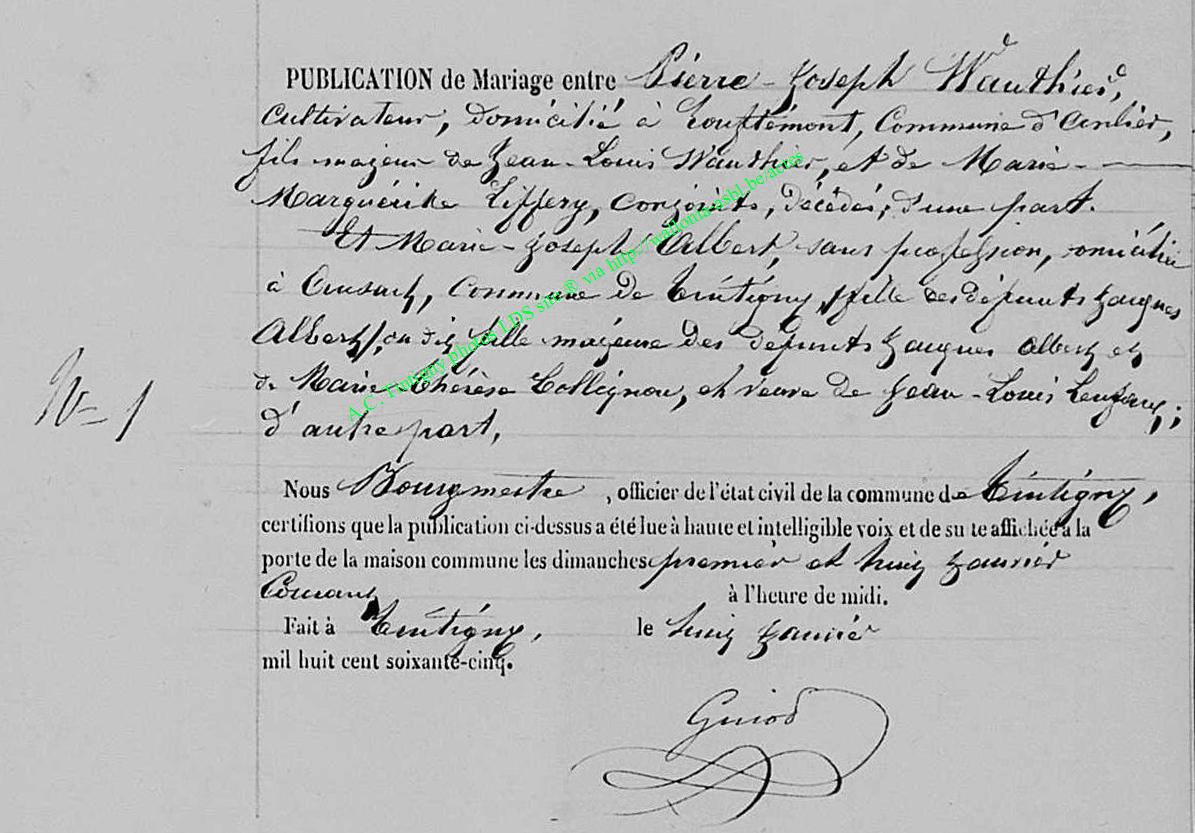 PUBLICATION de Mariage entre Pierre-Joseph Wauthier,
Cultivateur, domicilié à Louftémont, Commune d'Anlier,
fils majeur de Jean-Louis Wauthier, et de Marie-
Marguérite Liffery, conjoints, décédés, d'une part.
Et Marie-Joseph Albert, sans profession, domiciliée
à Ansart, Commune de Tintigny, fille des défunts Jacques
Albert, on dis fille majeure des defunts Jacques Albert et
de Marie-Thérèse Collignon, et veuve de Jean-Louis ;
d'autre part,
N° 1
Nous Bourgmestre , officier de l'état civil de la commune de Tintigny,
certifions que la publication ci-dessus a été lue à haute et intelligible voix et de su te affichée a la
porte de la maison commune les dimanches premier et huit Janvier
Courant à l'heure de midi.
Fait à Tintigny, le huit Janvier
mil huit cent soixante-cinq.
Guiod
A.C. Tintigny photos LDS site® via http://wallonia-asbl.be/acces